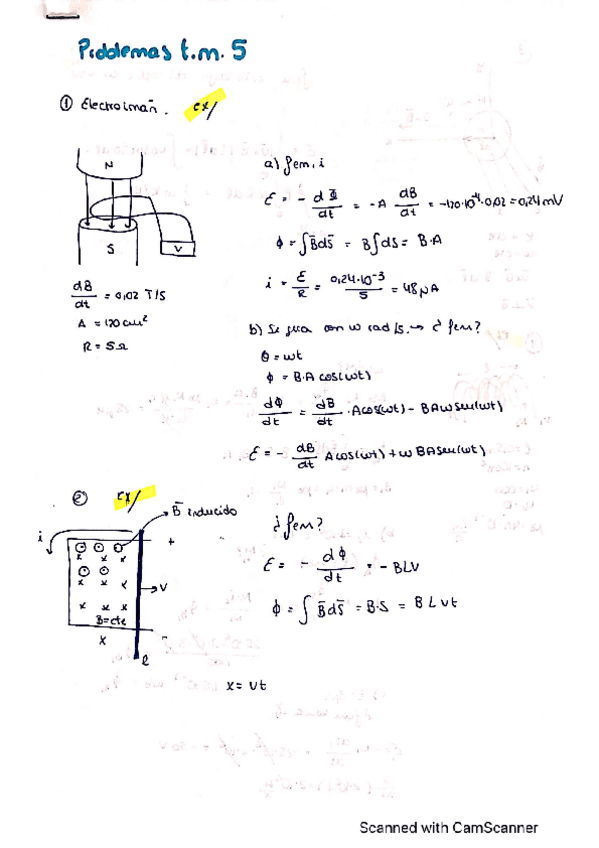 Problemas t.m. 5
① Electroimán. ex/
N
S
V
dB/dt = 0,02 T/S
A = 120 cm²
R = 5 Ω
a) fem, i
ε = - dΦ/dt = -A dB/dt = -120·10⁻⁴·0,02 = 0,24 mV
ϕ = ∫B̄dS̄ = B∫dS = B·A
i = ε/R = 0,24·10⁻³/5 = 48 μA
b) Se gira con w rad/s. → ¿ fem?
θ = wt
ϕ = B·A cos(wt)
dΦ/dt = dB/dt · Acos(wt) - BAw sen(wt)
ε = - dB/dt A cos(wt) + w BA sen(wt)
② ex/
B̄ inducido
i
+
V
x x x
x x x
x x x
B=cte
x
-
l
x = vt
¿ fem?
ε = - dΦ/dt = - BLV
ϕ = ∫ B̄dS̄ = B·S = B L vt
Scanned with CamScanner